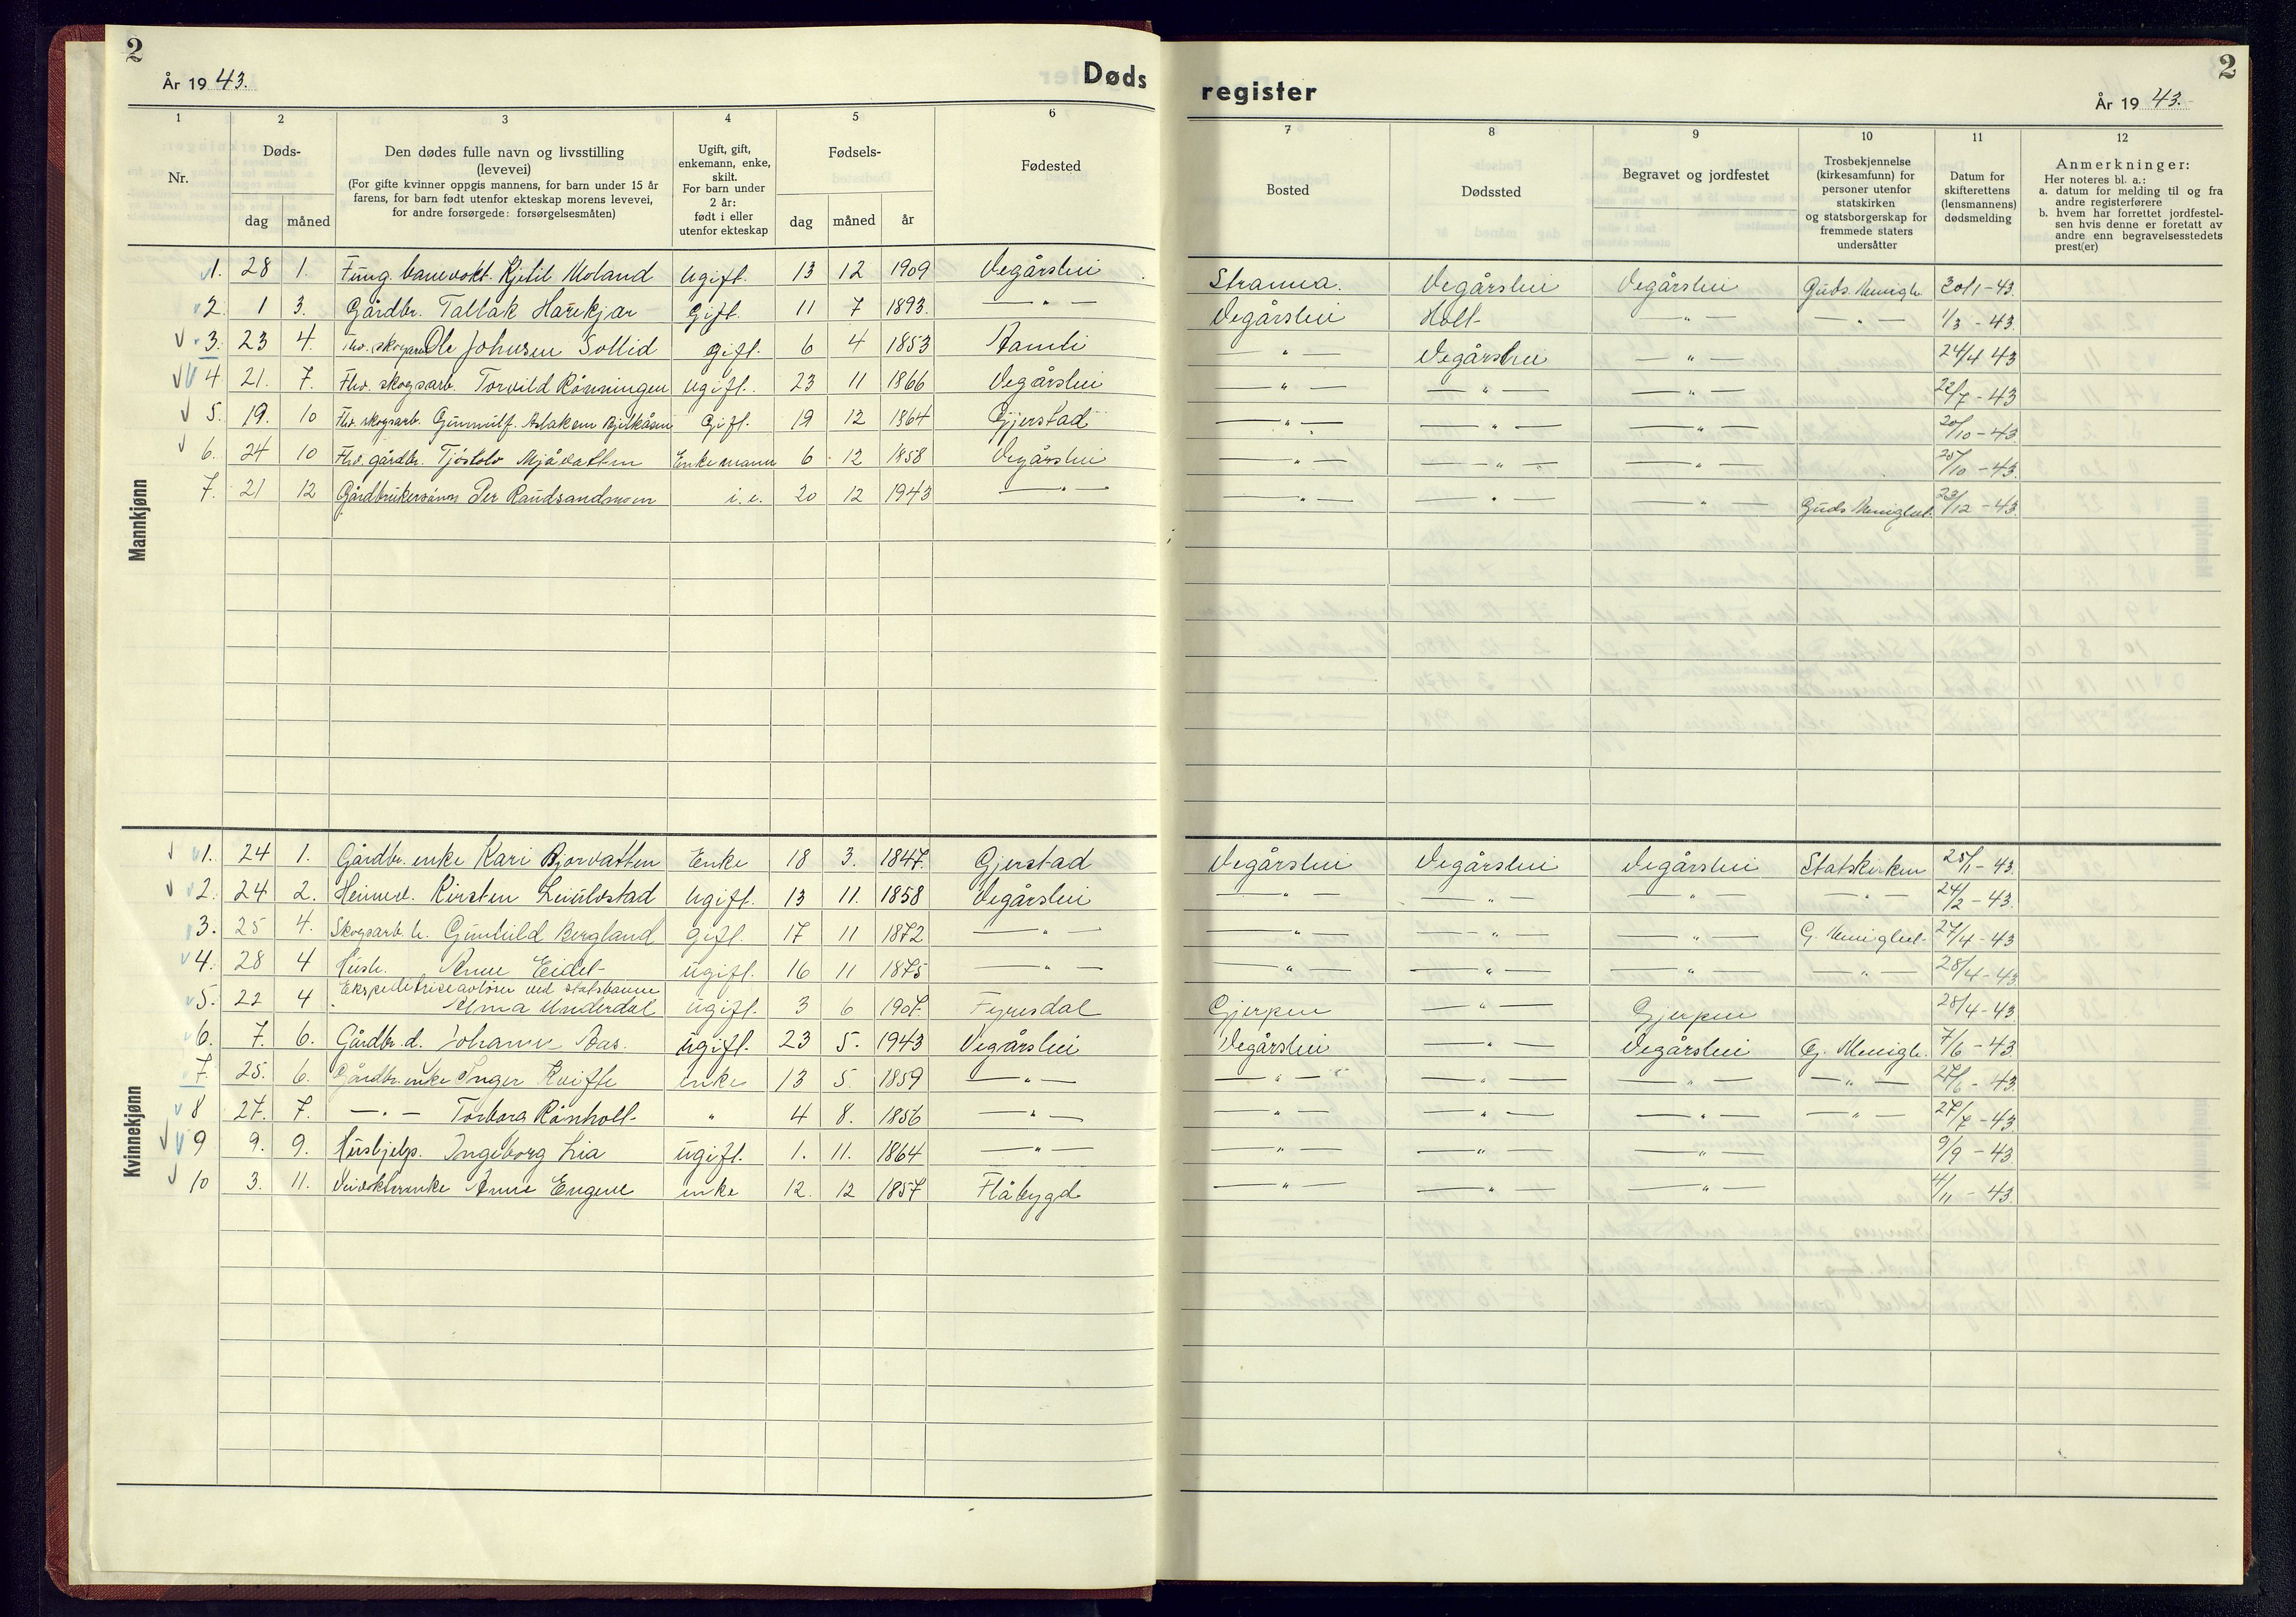 2
År 1943.
Døds
register
År 1943.
2
1 2 3 4 5 6
Nr.
Døds-
dag måned
Den dødes fulle navn og livsstilling
(levevei)
(For gifte kvinner oppgis mannens, for barn under 15 år
farens, for barn født utenfor ekteskap morens levevei,
for andre forsørgede: forsørgelsesmåten)
Ugift, gift,
enkemann, enke,
skilt.
For barn under
2 år:
født i eller
utenfor ekteskap
Fødsels-
dag måned år
Fødested
7 8 9 10 11 12
Bosted
Dødssted
Begravet og jordfestet
Trosbekjennelse
(kirkesamfunn) for
personer utenfor
statskirken
og statsborgerskap for
fremmede staters
undersåtter
Datum for
skifterettens
(lensmannens)
dødsmelding
Anmerkninger:
Her noteres bl. a.:
a. datum for melding til og fra
andre registerførere
b. hvem har forrettet jordfestel-
sen hvis denne er foretatt av
andre enn begravelsesstedets
prest(er)
Mannkjønn
1. 28 1. Fung. banevokt. Kjetil Moland Ugift. 13 12 1909 Vegårshei Vegårshei Vegårshei Guds Menigh. 30/1-43.
2. 1 3. Gårdbr. Tallak Harekjær Gift. 11 7 1893. — " — Vegårshei Holt — " — — " — 1/3-43.
3. 23 4. Ole Johnsen Sollid gift. 6 4 1853 Aamli — " — Vegårshei — " — 24/4 43
4. 21. 7. Fhv. skogsarb. Torvild Rønningen ugift. 23 11 1866 Vegårshei — " — — " — — " — 22/7-43
5. 19. 10 Fhv. skogsarb. Gunnulf Aslaksen Gift. 19 12 1864 Gjerstad — " — — " — — " — 20/10-43.
6. 24 10 Fhv. gårdbr. Tjøstolv Mjåvatten Enkemann 6 12 1858 Vegårshei — " — — " — — " — 25/10-43.
7. 21 12 Gårdbrukersønn Per Raudsandmoen i. e. 20 12 1943 — " — — " — — " — — " — Guds Menighet. 23/12-43.
Kvinnekjønn
1. 24 1. Gårdbr. enke Kari Bjorvatten Enke 18 3. 1847. Gjerstad Vegårshei Vegårshei Vegårshei Statskirken 25/1-43.
2. 24 2. Kirsten Leiulvstad Ugift. 13 11. 1858 Vegårshei — " — — " — — " — — " — 24/2-43.
3. 25 4. Skogsarb. h. Gunhild Bergland gift. 17 11 1872 — " — — " — — " — — " — G. Menighet. 27/4-43
4. 28 4 Hush. Anne Eidet ugift. 16 11 1875 — " — — " — — " — — " — — " — 28/4-43.
5. 22 4 Ekspeditriseavløser ved statsbanene
Alma Underdal ugift. 3 6 1907. Fyresdal Gjerpen — " — Gjerpen 28/4-43.
6. 7. 6. Gårdbr. d. Johanne Aas. ugift. 23 5. 1943 Vegårshei Vegårshei — " — Vegårshei G. Menigh. 7/6-43.
7. 25. 6. Gårdbr. enke Inger enke 13 5. 1859 — " — — " — — " — — " — — " — 27/6-43.
8 27. 7. — " — Torborg Rønholt " 4 8. 1856 — " — — " — — " — — " — — " — 27/7-43.
9 9. 9. Hushjelp. Ingeborg Lia ugift. 1. 11. 1864 — " — — " — — " — — " — 9/9-43.
10 3. 11. Veivokterenke Anne Engene enke 12. 12 1857 Flåbygd — " — — " — — " — 4/11-43.